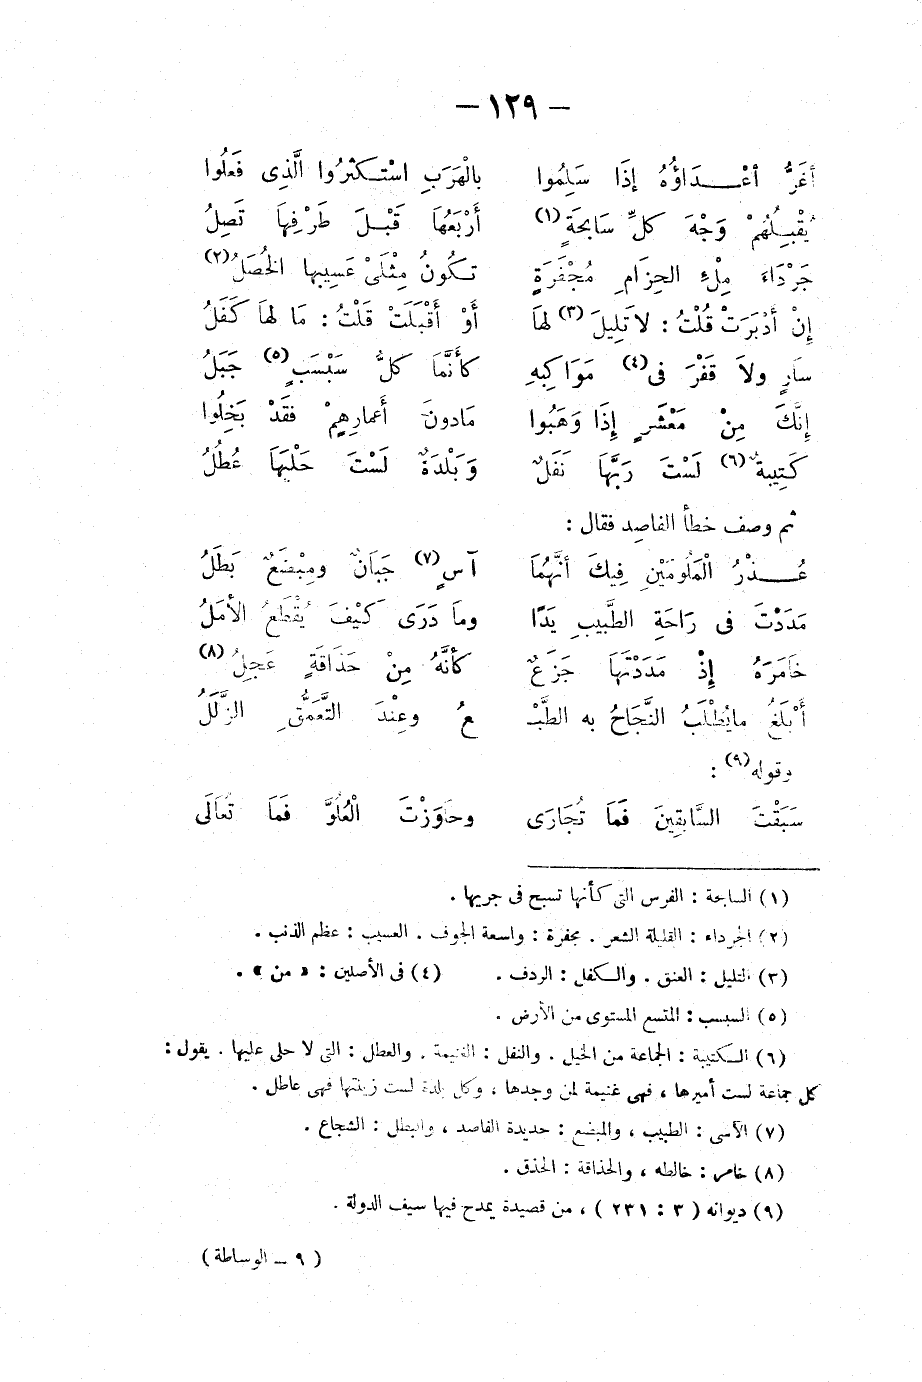 — ١٢٩ —
أَغَرُّ أعْــدَاؤُهُ إذَا سَلِمُوا بالْهَرَبِ اسْتَـكْثَرُوا الَّذِى فَعَلُوا
يُقْبِـلُهُمْ وَجْهَ كلِّ سَابحَةٍ (١) أَرْبَعُهَا قَبْـلَ طَرْفِهَا تَصِلُ
جَرْدَاءَ مِلْءِ الحِزَامِ مُجْفَرَةٍ تَـكُونُ مِثْلَىْ عَسِيبها الخُصَلُ (٢)
إنْ أَدْبَرَتْ قُلْتُ : لا تَلِيلَ (٣) لهَا أَوْ أَقْبَلَتْ قَلْتُ : مَا لهَا كَفَلُ
سَارٍ ولاَ قَفْرَ فى (٤) مَوَاكِبهِ كأَنَّمَا كلُّ سَبْسَبٍ (٥) جَبَلُ
إِنَّكَ مِنْ مَعْشَرٍ إِذَا وَهَبُوا مَادونَ أَعمارِهِمْ فقَدْ بَخِلُوا
كَتِيبةٌ (٦) لَسْتَ رَبَّهَا نَفَلٌ وَبَلْدَةٌ لَسْتَ حَلْيَهَا عُطُلُ
ثم وصف خطأ الفاصِد فقال :
عُــذْرُ الْمَلُومَيْنِ فِيكَ أنَّهُمَا آسٍ (٧) جَبَانٌ ومِبْضَعٌ بَطَلُ
مَدَدْتَ فى رَاحَةِ الطَّبيبِ يَدًا ومَا دَرَى كَيْفَ يُقْطَعُ الأمَلُ
خَامَرَهُ إِذْ مَدَدْتَهَا جَزَعٌ كأَنَّهُ مِنْ حَذَاقَةٍ عَجِلُ (٨)
أَبْلَغُ مايُطْلَبُ النَّجَاحُ به الطَّبْـ ـعُ وعِنْدَ التَّعَمُّقِ الزَّلَلُ
وقوله (٩) :
سَبَقْتَ السَّابِقِينَ فَمَا تُجَارَى وجَاوَزْتَ الْعُلُوَّ فَمَا تُعَالَى
(١) السابحة : الفرس التى كأنها تسبح فى جريها .
(٢) الجرداء : القليلة الشعر . مجفرة : واسعة الجوف . العسيب : عظم الذنب .
(٣) التليل : العنق . والـكفل : الردف . (٤) فى الأصلين : « من » .
(٥) السبسب : المتسع المستوى من الأرض .
(٦) الـكتيبة : الجماعة من الخيل . والنفل : الغنيمة . والعطل : التى لا حلى عليها . يقول :
كل جماعة لست أميرها ، فهى غنيمة لمن وجدها ، وكل بلدة لست زينتها فهى عاطل .
(٧) الآسى : الطبيب ، والمبضع : حديدة الفاصد ، والبطل : الشجاع .
(٨) خامر : خالطه ، والحذاقة : الحذق .
(٩) ديوانه ( ٣ : ٢٣١ ) ، من قصيدة يمدح فيها سيف الدولة .
( ٩ – الوساطة )